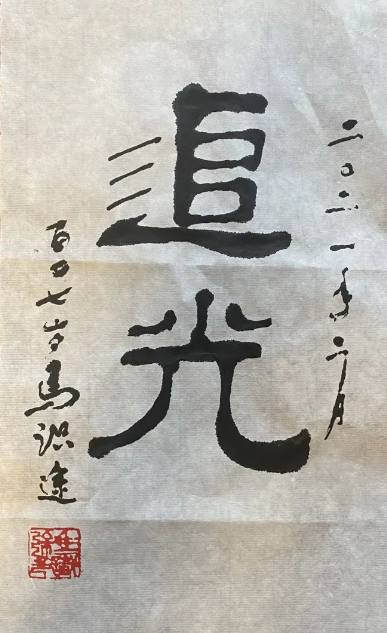 二〇二一年二月
追光
百〇七岁馬识途